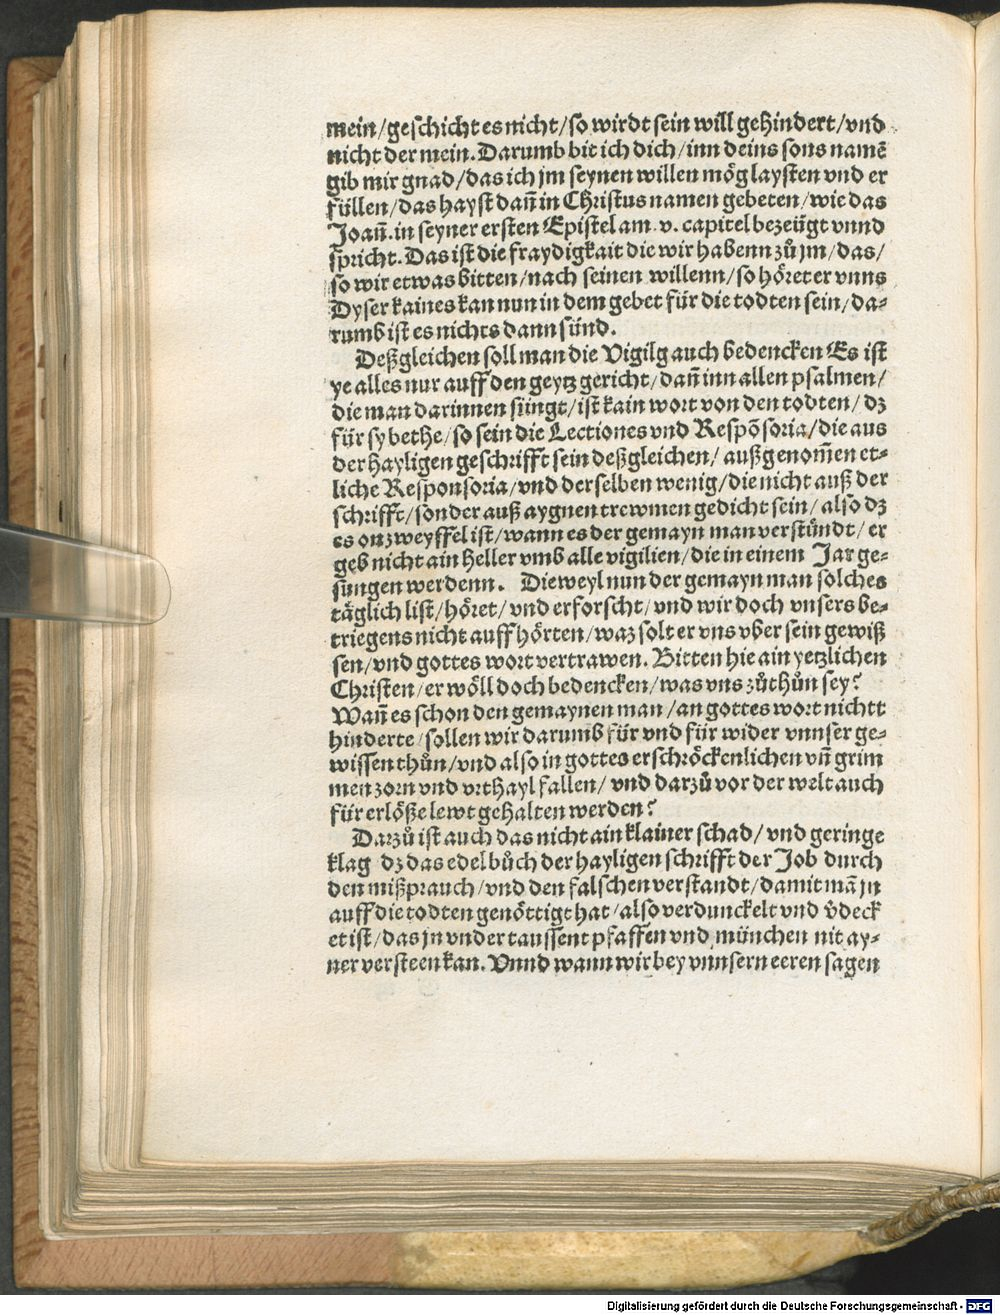 mein/geschicht es nicht/so wirdt sein will gehindert/vnd
nicht der mein. Darumb bit ich dich/inn deins sons namē
gib mir gnad/das ich jm seynen willen mög laysten vnd er
füllen/das hayst dañ in Christus namen gebeten/wie das
Joañ. in seyner ersten Epistel am .v. capitel bezeügt vnnd
spricht. Das ist die fraydigkait die wir habenn zů jm/das/
so wir etwas bitten/nach seinen willenn/so höret er vnns
Dyser kaines kan nun in dem gebet für die todten sein/da⸗
rumb ist es nichts dann sünd.
Deßgleichen soll man die Vigilg auch bedencken Es ist
ye alles nur auff den geytz gericht/dañ inn allen psalmen/
die man darinnen singt/ist kain wort von den todten/dz
für sy bethe/so sein die Lectiones vnd Respōsoria/die aus
der hayligen geschrifft sein deßgleichen/außgenom̄en et⸗
liche Responsoria/vnd derselben wenig/die nicht auß der
schrifft/sonder auß aygnen trewmen gedicht sein/also dz
es on zweyffel ist/wann es der gemayn man verstündt/er
geb nicht ain heller vmb alle vigilien/die in einem Jar ge⸗
sungen werdenn. Dieweyl nun der gemayn man solches
täglich list/höret/vnd erforscht/vnd wir doch vnsers be⸗
triegens nicht auffhörten/waz solt er vns vber sein gewiß
sen/vnd gottes wort vertrawen. Bitten hie ain yetzlichen
Christen/er wöll doch bedencken/was vns zůthůn sey?
Wañ es schon den gemaynen man/an gottes wort nichtt
hinderte/sollen wir darumb für vnd für wider vnnser ge⸗
wissen thůn/vnd also in gottes erschröckenlichen vñ grim
men zorn vnd vrthayl fallen/vnd darzů vor der welt auch
für erlöße lewt gehalten werden?
Darzů ist auch das nicht ain klainer schad/vnd geringe
klag dz das edel bůch der hayligen schrifft der Job durch
den mißprauch/vnd den falschen verstandt/damit mā jn
auff die todten genöttigt hat/also verdunckelt vnd v̊deck
et ist/das jn vnder taussent pfaffen vnd münchen nit ay⸗
ner versteen kan. Vnnd wann wir bey vnnsern eeren sagen
Digitalisierung gefördert durch die Deutsche Forschungsgemeinschaft - DFG